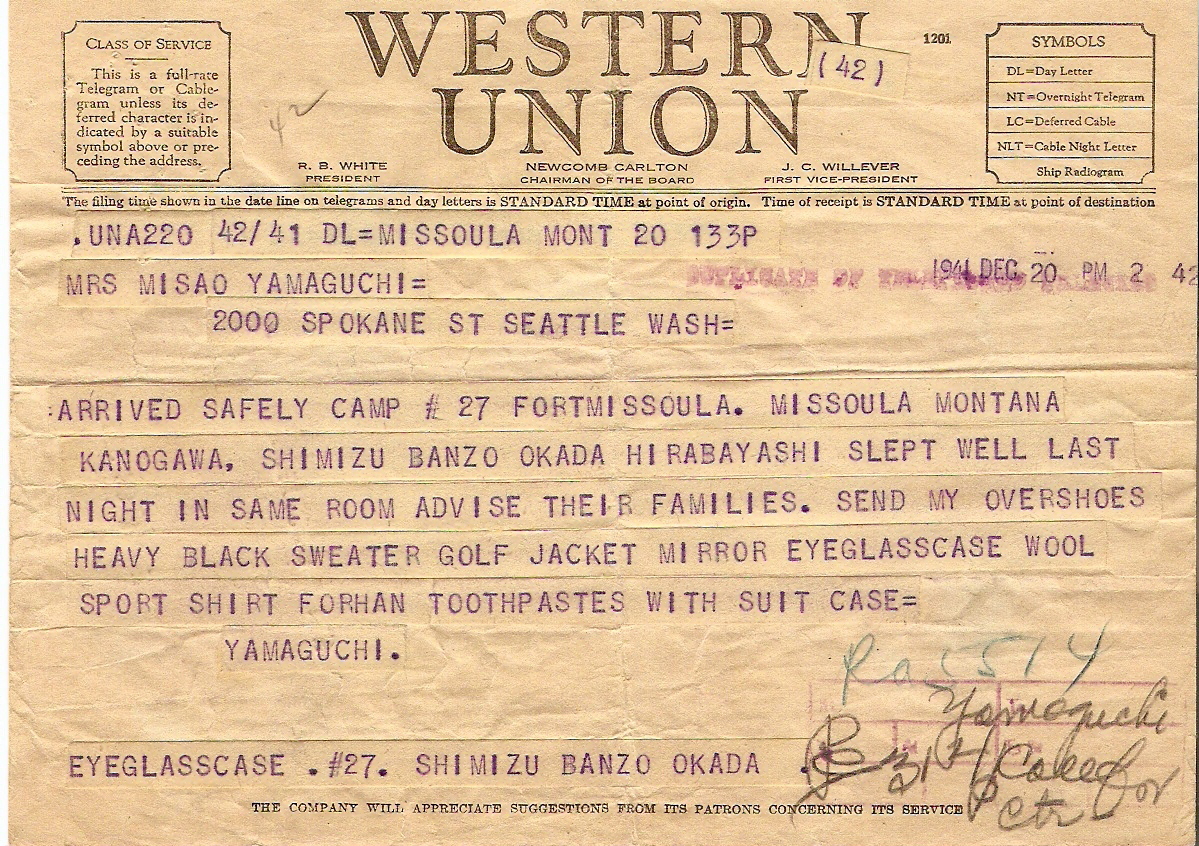 CLASS OF SERVICE
This is a full-rate
Telegram or Cable-
gram unless its de-
ferred character is in-
dicated by a suitable
symbol above or pre-
ceding the address.
WESTERN
UNION
(42)
1201
42
SYMBOLS
DL=Day Letter
NT=Overnight Telegram
LC=Deferred Cable
NLT=Cable Night Letter
Ship Radiogram
R. B. WHITE
PRESIDENT
NEWCOMB CARLTON
CHAIRMAN OF THE BOARD
J. C. WILLEVER
FIRST VICE-PRESIDENT
The filing time shown in the date line on telegrams and day letters is STANDARD TIME at point of origin. Time of receipt is STANDARD TIME at point of destination
.UNA220 42/41 DL=MISSOULA MONT 20 133P
1941 DEC 20 PM 2 42
DUPLICATE OF TELEPHONED TELEGRAM
MRS MISAO YAMAGUCHI=
2000 SPOKANE ST SEATTLE WASH=
:ARRIVED SAFELY CAMP # 27 FORTMISSOULA. MISSOULA MONTANA
KANOGAWA, SHIMIZU BANZO OKADA HIRABAYASHI SLEPT WELL LAST
NIGHT IN SAME ROOM ADVISE THEIR FAMILIES. SEND MY OVERSHOES
HEAVY BLACK SWEATER GOLF JACKET MIRROR EYEGLASSCASE WOOL
SPORT SHIRT FORHAN TOOTHPASTES WITH SUIT CASE=
YAMAGUCHI.
Ra 5514
Yamaguchi
314P
Called for
Ctr
EYEGLASSCASE .#27. SHIMIZU BANZO OKADA .
THE COMPANY WILL APPRECIATE SUGGESTIONS FROM ITS PATRONS CONCERNING ITS SERVICE